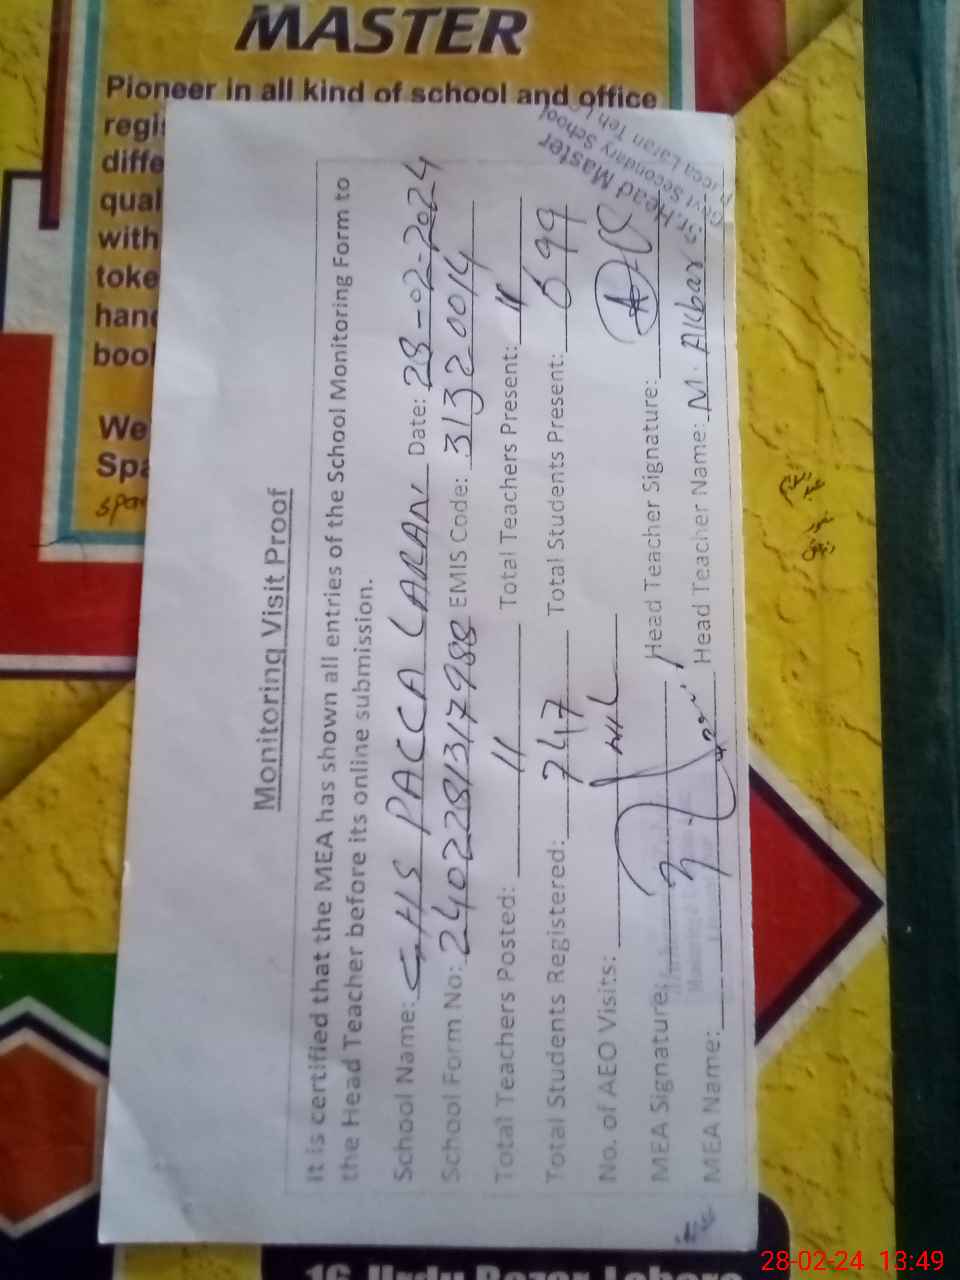 MASTER
Pioneer in all kind of school and office
regi
diffe
qual
with
toke
hand
bool
We
Spa
Monitoring Visit Proof
It is certified that the MEA has shown all entries of the School Monitoring Form to
the Head Teacher before its online submission.
School Name: GHS PACCA LARAN Date: 28-02-2024
School Form No: 2402281317988 EMIS Code: 31320014
Total Teachers Posted: 11 Total Teachers Present: 11
Total Students Registered: 747 Total Students Present: 699
No. of AEO Visits: NIL
MEA Signature: Head Teacher Signature:
MEA Name: Head Teacher Name: M. Akbar
Sr. Head Master
Govt Secondary School
Pacca Laran Teh
16 Urdu Bazar Lahore
28-02-24 13:49